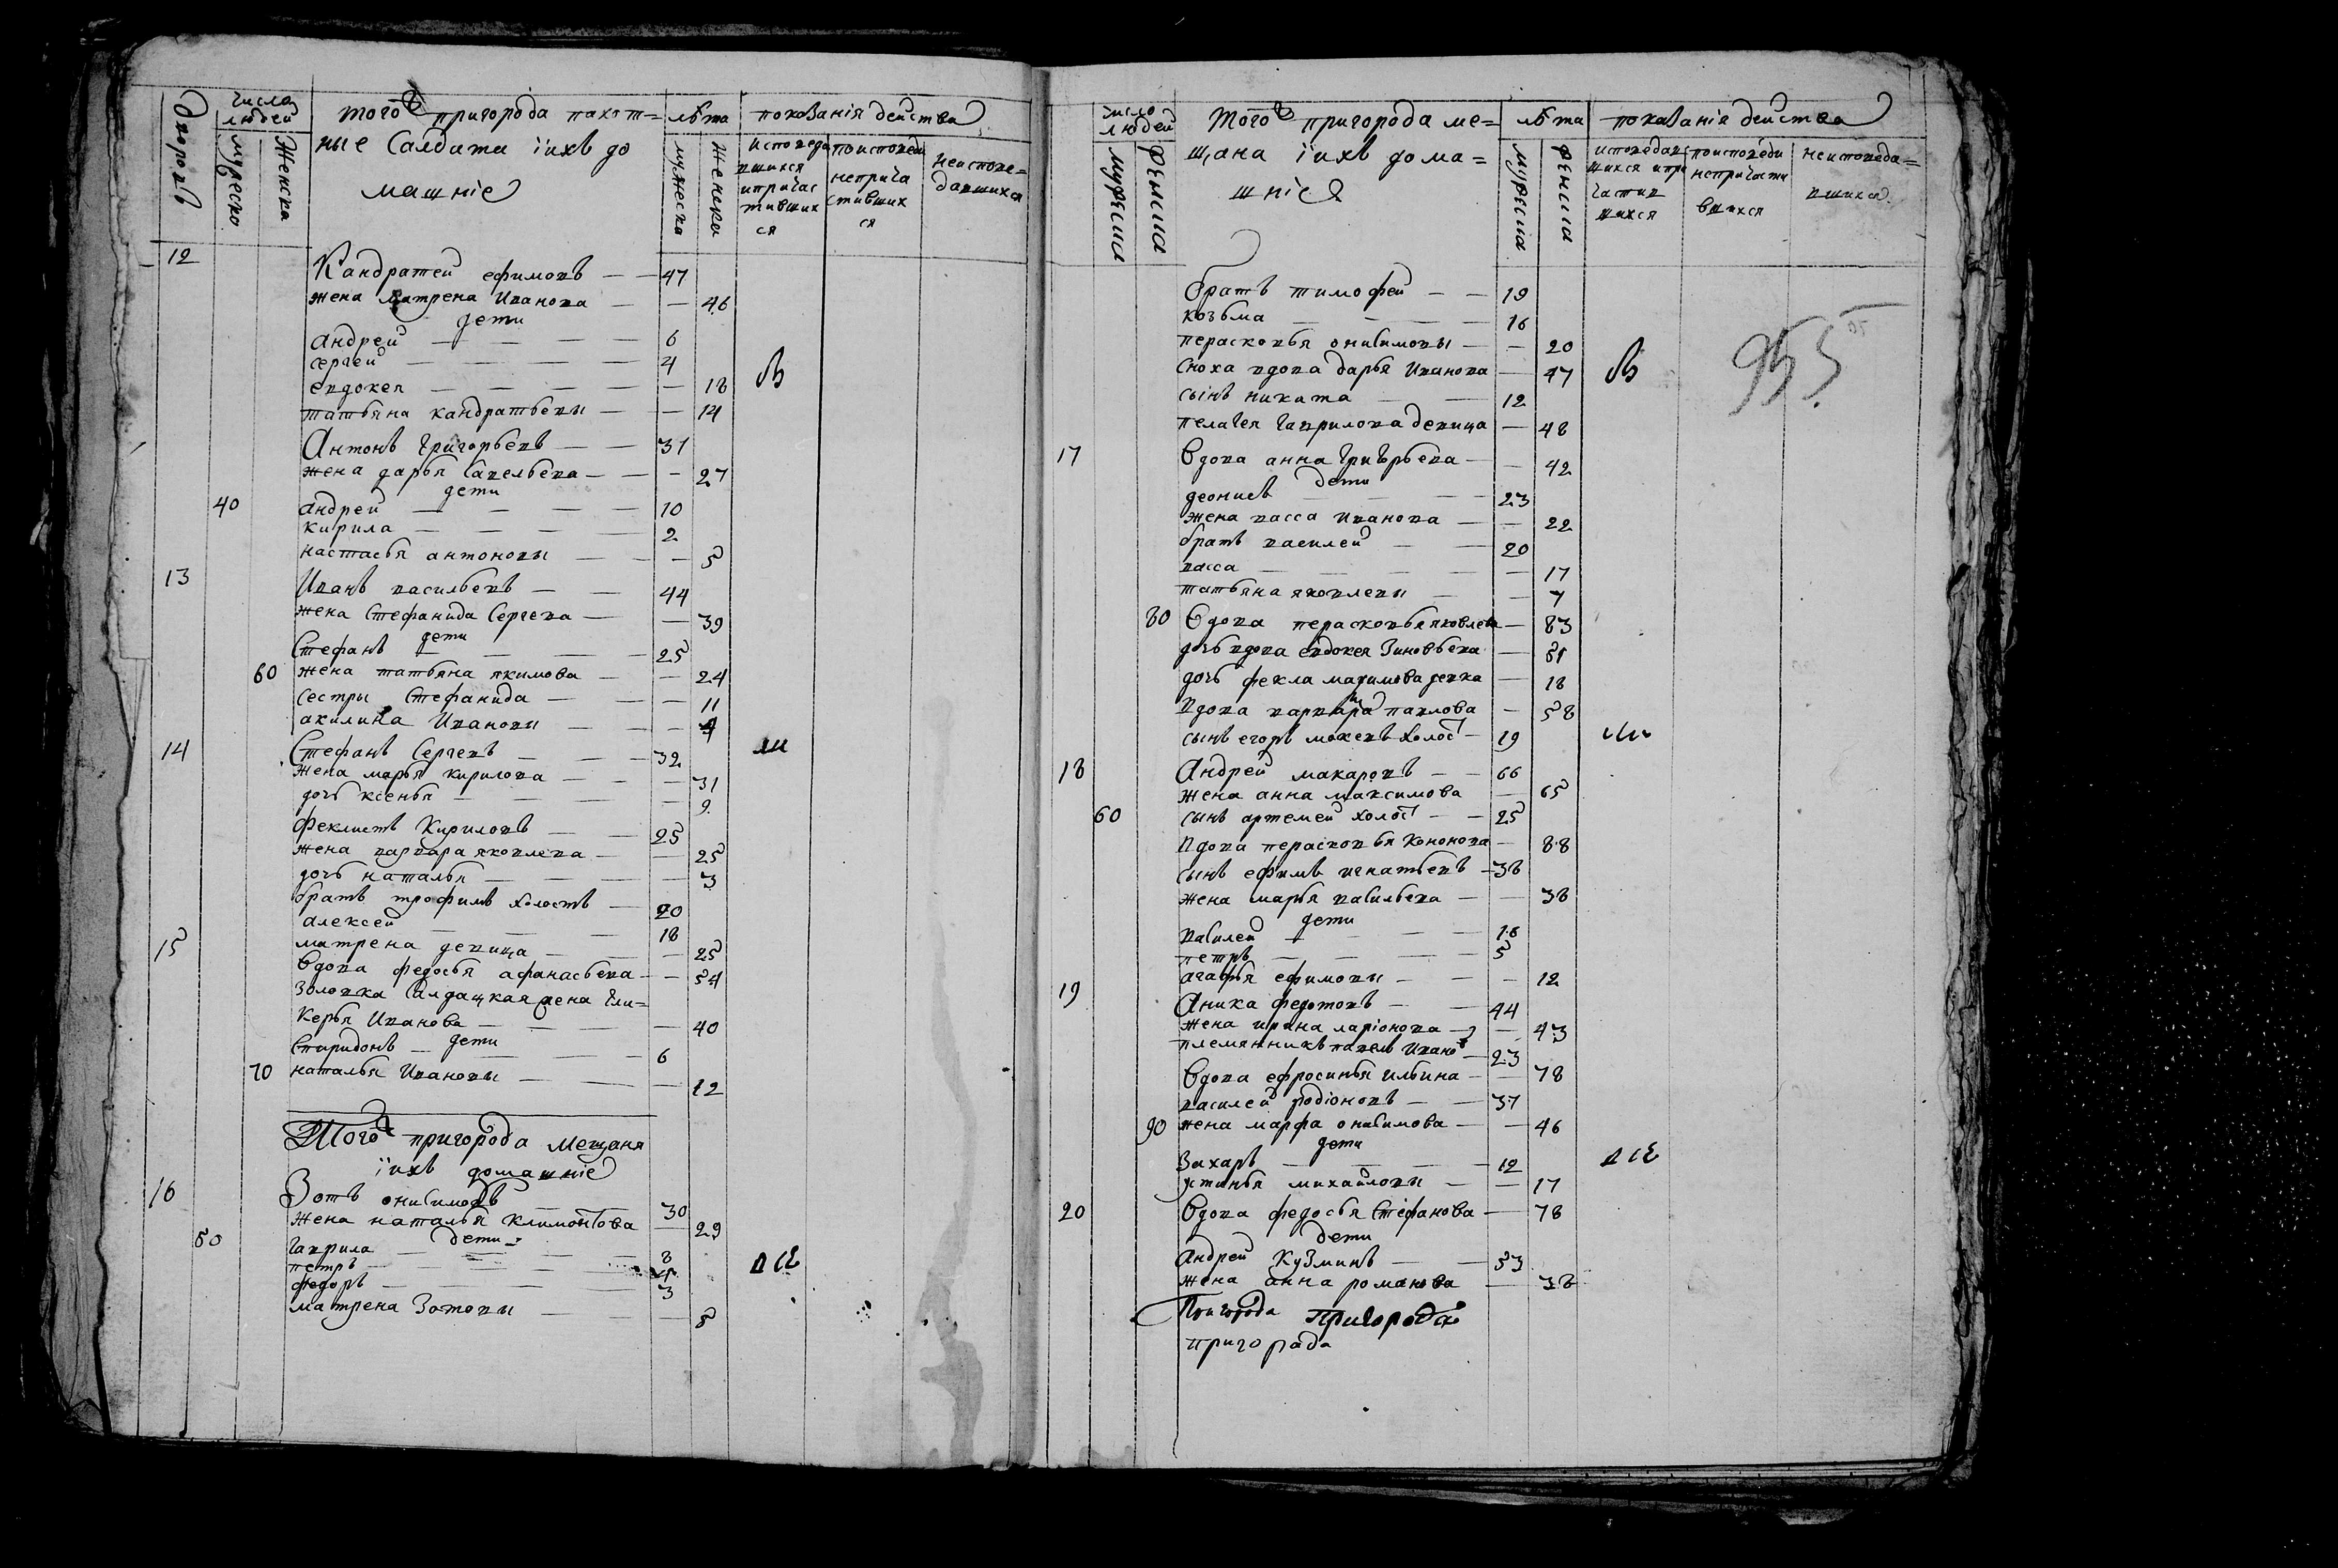 Дворовъ
Числа людей
мужеска
Женска
Того пригорода пахот=
ные Салдаты їихъ до
машнїе
лѣта
мужеска
женска
показанїя действа
исповеда
вшихся
ипричас
тивших
ся
поисповеди
неприча
стивших
ся
неисповe=
давшихся
12
Кандратей ефимовъ — 47
жена матрена Иванова — 46
дети
андрей — 6
сергей — 4
евдокея — 18
татьяна кандратьевы — 14
Антонъ Григорьевъ — 31
жена дарья Савельева — 27
дети
40 андрей — 10
кирила — 2
настасья антоновы — 5
13 Иванъ васильевъ — 44
жена Стефанида Сергева — 39
дети
Стефанъ — 25
60 жена татьяна якимова — 24
сестры Стефанида — 11
акилина Ивановы — 4
14 Стефанъ Сергевъ — 32
жена марья Кирилова — 31
дочь ксенья — 9
феклистъ Кириловъ — 25
жена варвара яковлева — 25
дочь наталья — 3
братъ трофимъ холостъ — 20
алексей — 18
матрена девица — 25
15 Вдова федосья афанасьева — 54
Золовка Салдацкая жена Гли=
керья Иванова — 40
дети
Спиридонъ — 6
70 наталья Ивановы — 12
Того пригорода мещаня
їихъ домашнїе
16 Зотъ онисимовъ — 30
жена наталья климонтова — 29
дети
50 гаврила — 8
петръ
федоръ — 3
матрена Зотовы — 5
число людей
мужеска
женска
Того пригорода ме=
щана їихъ дома=
шнїе
лѣта
мужеска
женска
показанїя действа
исповедав
шихся ипри
частив
шихся
поисповеди
непричасти
вшихся
неисповеда=
вшихся
955
братъ тимофей — 19
козьма — 16
перасковья онисимовы — 20
Сноха вдова дарья Иванова — 47
сынъ никита — 12
пелагея гаврилова девица — 48
17 Вдова анна Григорьева — 42
дети
деонисъ — 23
жена васса Иванова — 22
братъ василей — 20
васса — 17
татьяна яковлевы — 7
80 Вдова перасковья яковлева — 83
дочь вдова евдокея Зиновьева — 51
дочь фекла максимова девка — 18
Вдова варвара павлова — 58
сынъ егоръ мокевъ холост — 19
18 Андрей макаровъ — 66
жена анна максимова — 65
60 сынъ артемей холост — 25
Вдова перасковья Кононова — 88
сынъ ефимъ игнатьевъ — 38
жена марья васильева — 38
дети
василей — 18
петръ — 5
агафья ефимовы — 12
19 Аника федотовъ — 44
жена ирина ларїонова — 43
племянникъ павелъ Ивано — 23
Вдова ефросинья ильина — 78
василей родїоновъ — 37
90 жена марфа онисимова — 46
дети
Захаръ — 12
устинья михайловы — 17
20 Вдова федосья Стефанова — 78
дети
андрей Кузминъ — 53
жена анна романова — 38
Пригорода Пригорода
пригорада